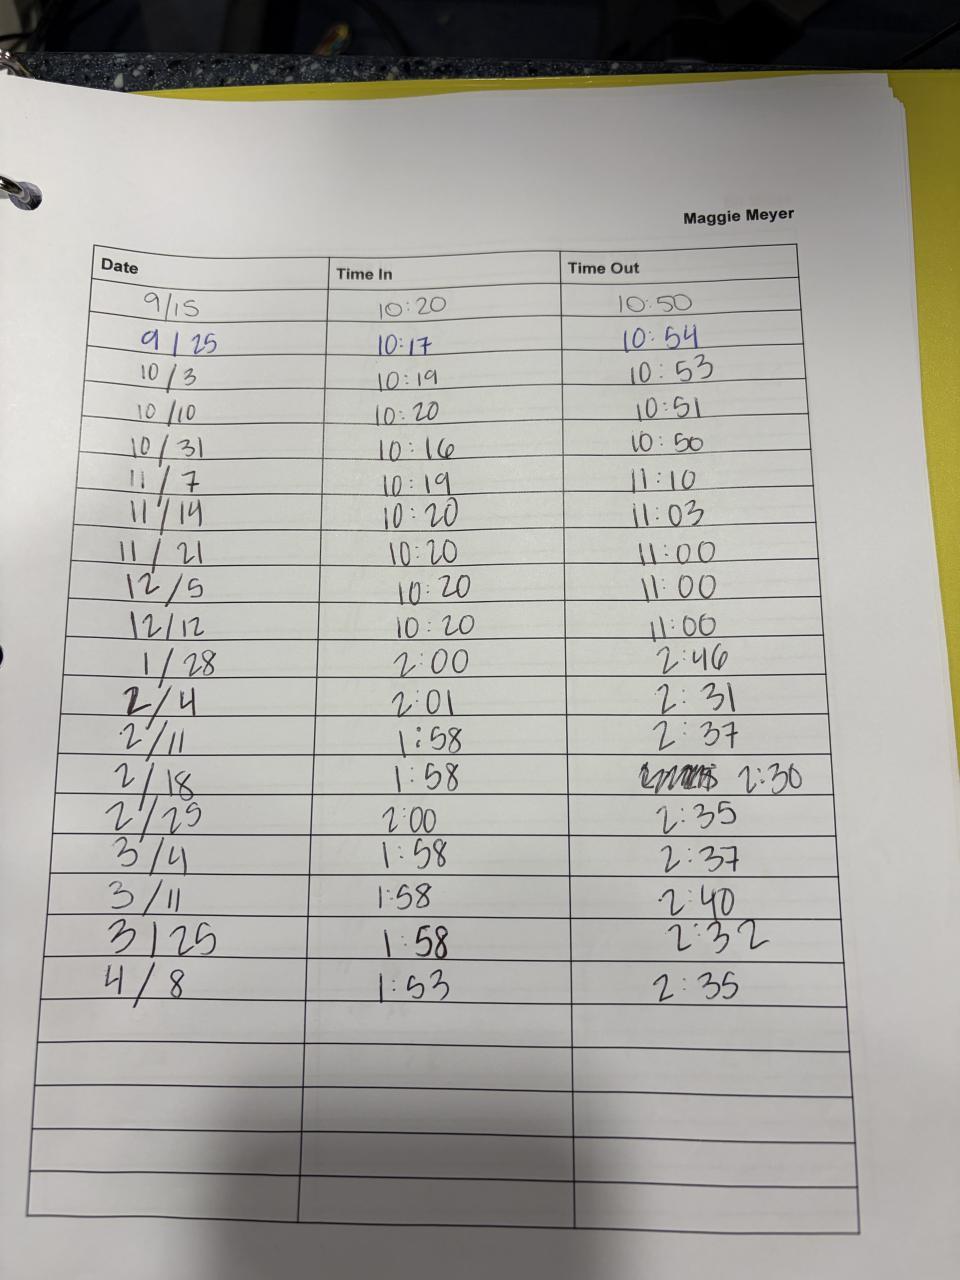 Maggie Meyer
Date Time In Time Out
9/15 10:20 10:50
9/25 10:17 10:54
10/3 10:19 10:53
10/10 10:20 10:51
10/31 10:16 10:50
11/7 10:19 11:10
11/14 10:20 11:03
11/21 10:20 11:00
12/5 10:20 11:00
12/12 10:20 11:00
1/28 2:00 2:46
2/4 2:01 2:31
2/11 1:58 2:37
2/18 1:58 2:30
2/25 2:00 2:35
3/4 1:58 2:37
3/11 1:58 2:40
3/25 1:58 2:32
4/8 1:53 2:35